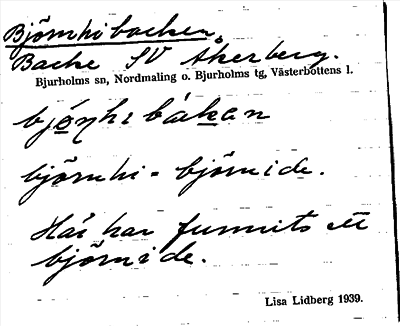 Björnhibacken.
Backe SV Åkerberg.
Bjurholms sn, Nordmaling o. Bjurholms tg, Västerbottens l.
bjo̱ŋhibákan
björnhi = björnide.
Här har funnits ett
björnide.
Lisa Lidberg 1939.